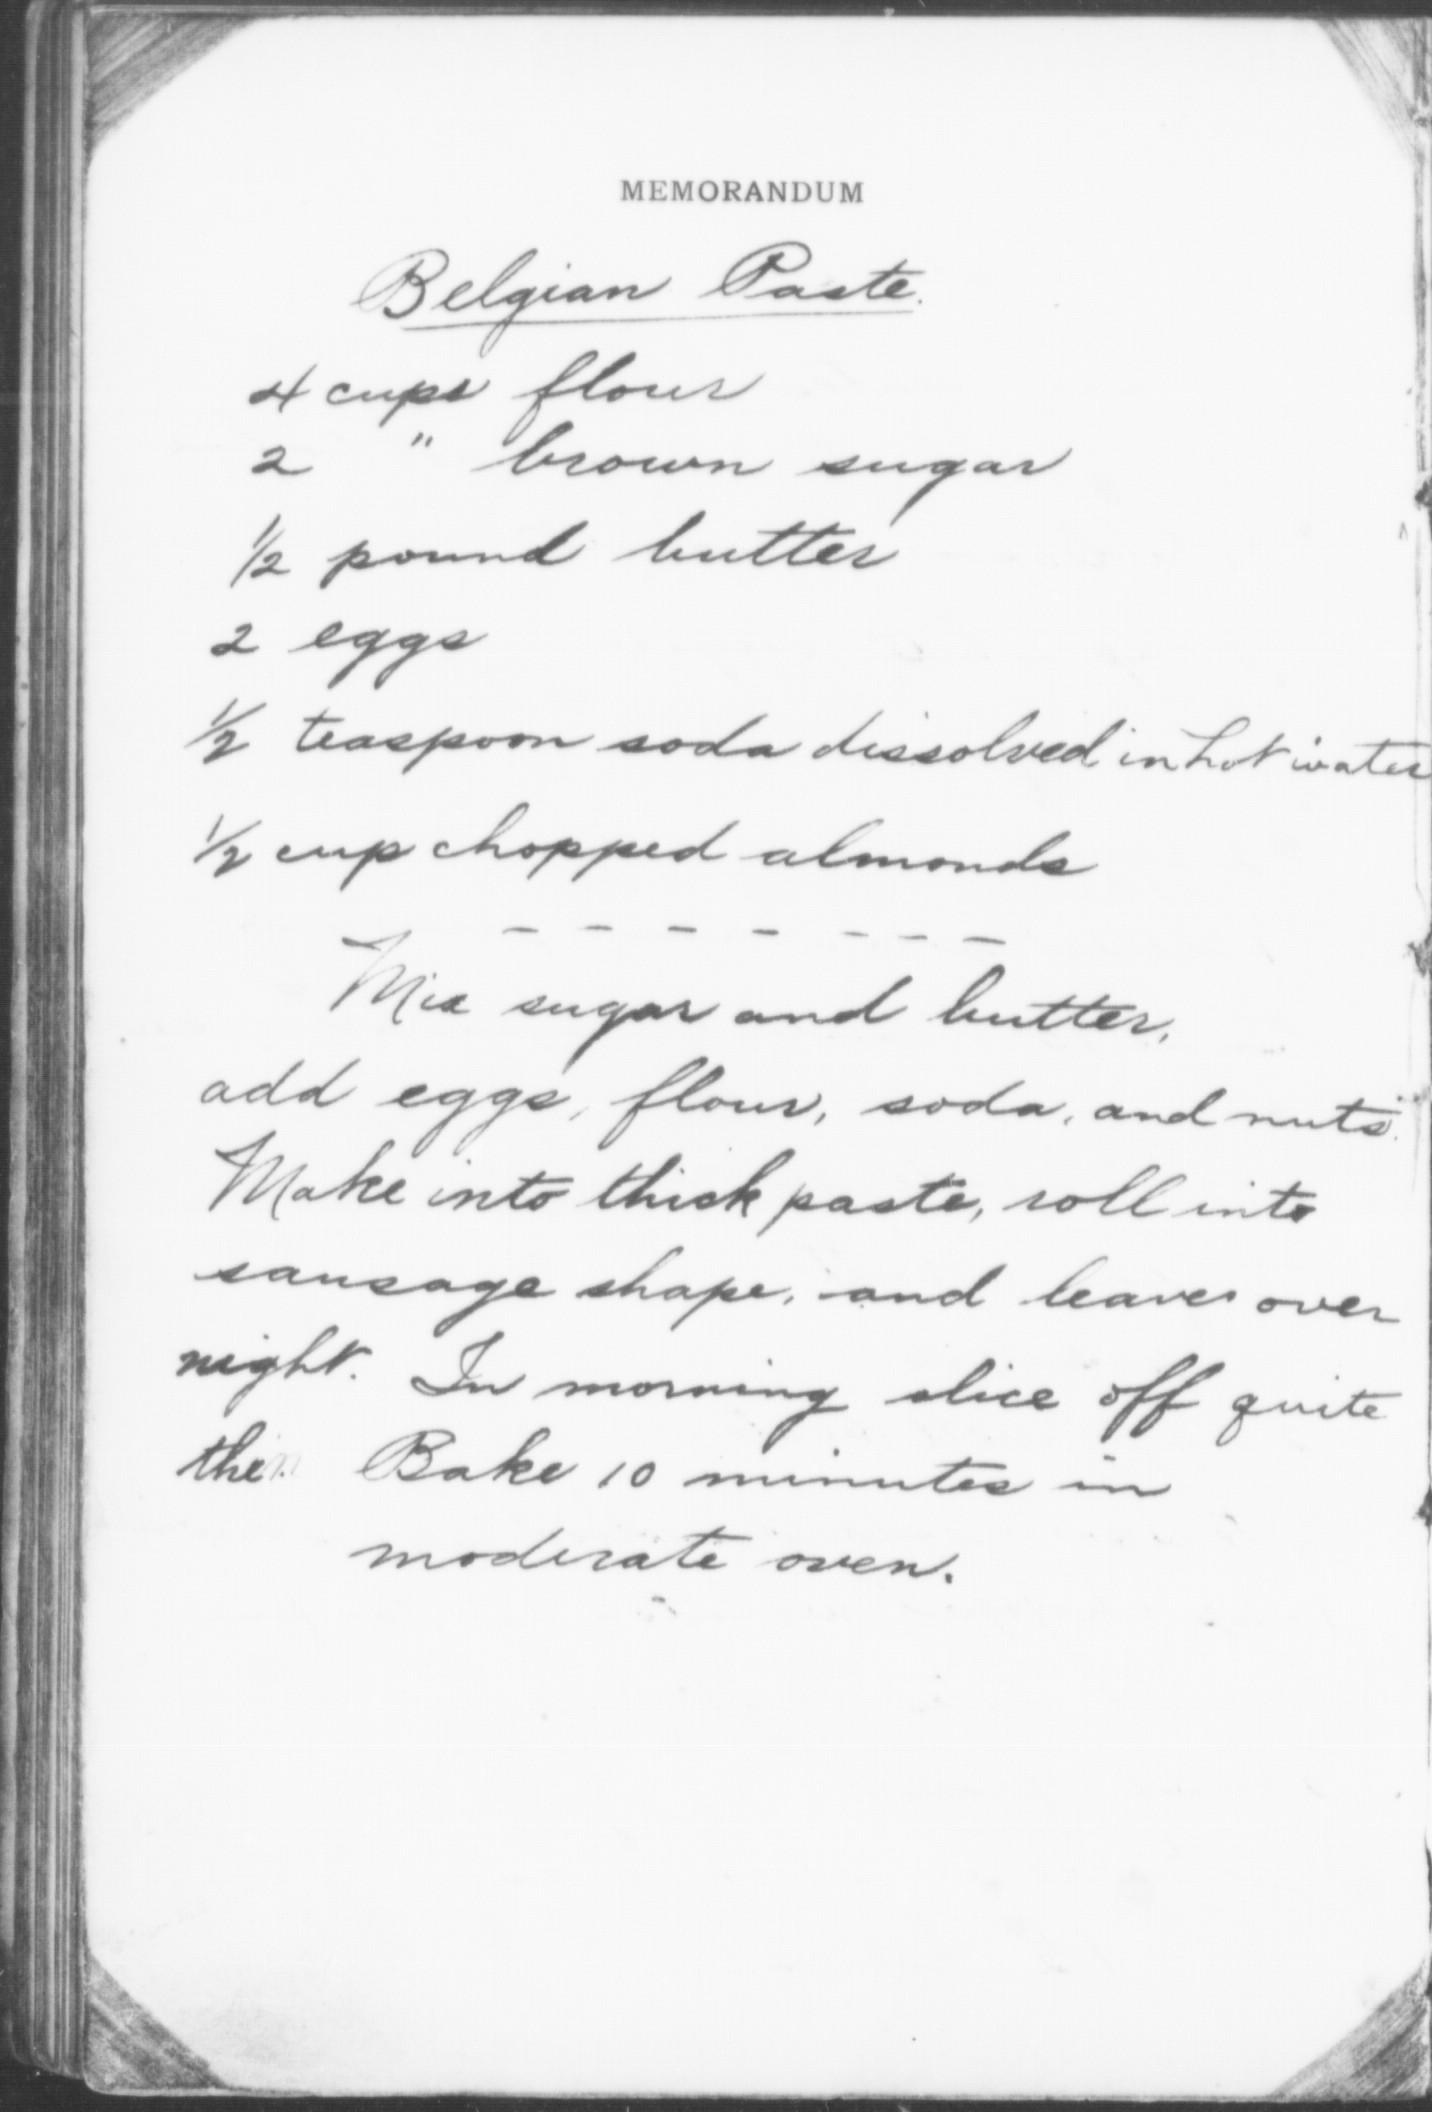 MEMORANDUM
Belgian Paste.
4 cups flour
2 " brown sugar
1/2 pound butter
2 eggs
1/2 teaspoon soda dissolved in hot water
1/2 cup chopped almonds
- - - - - - -
Mix sugar and butter,
add eggs, flour, soda, and nuts.
Make into thick paste, roll into
sausage shape, and leave over
night. In morning slice off quite
thin. Bake 10 minutes in
moderate oven.